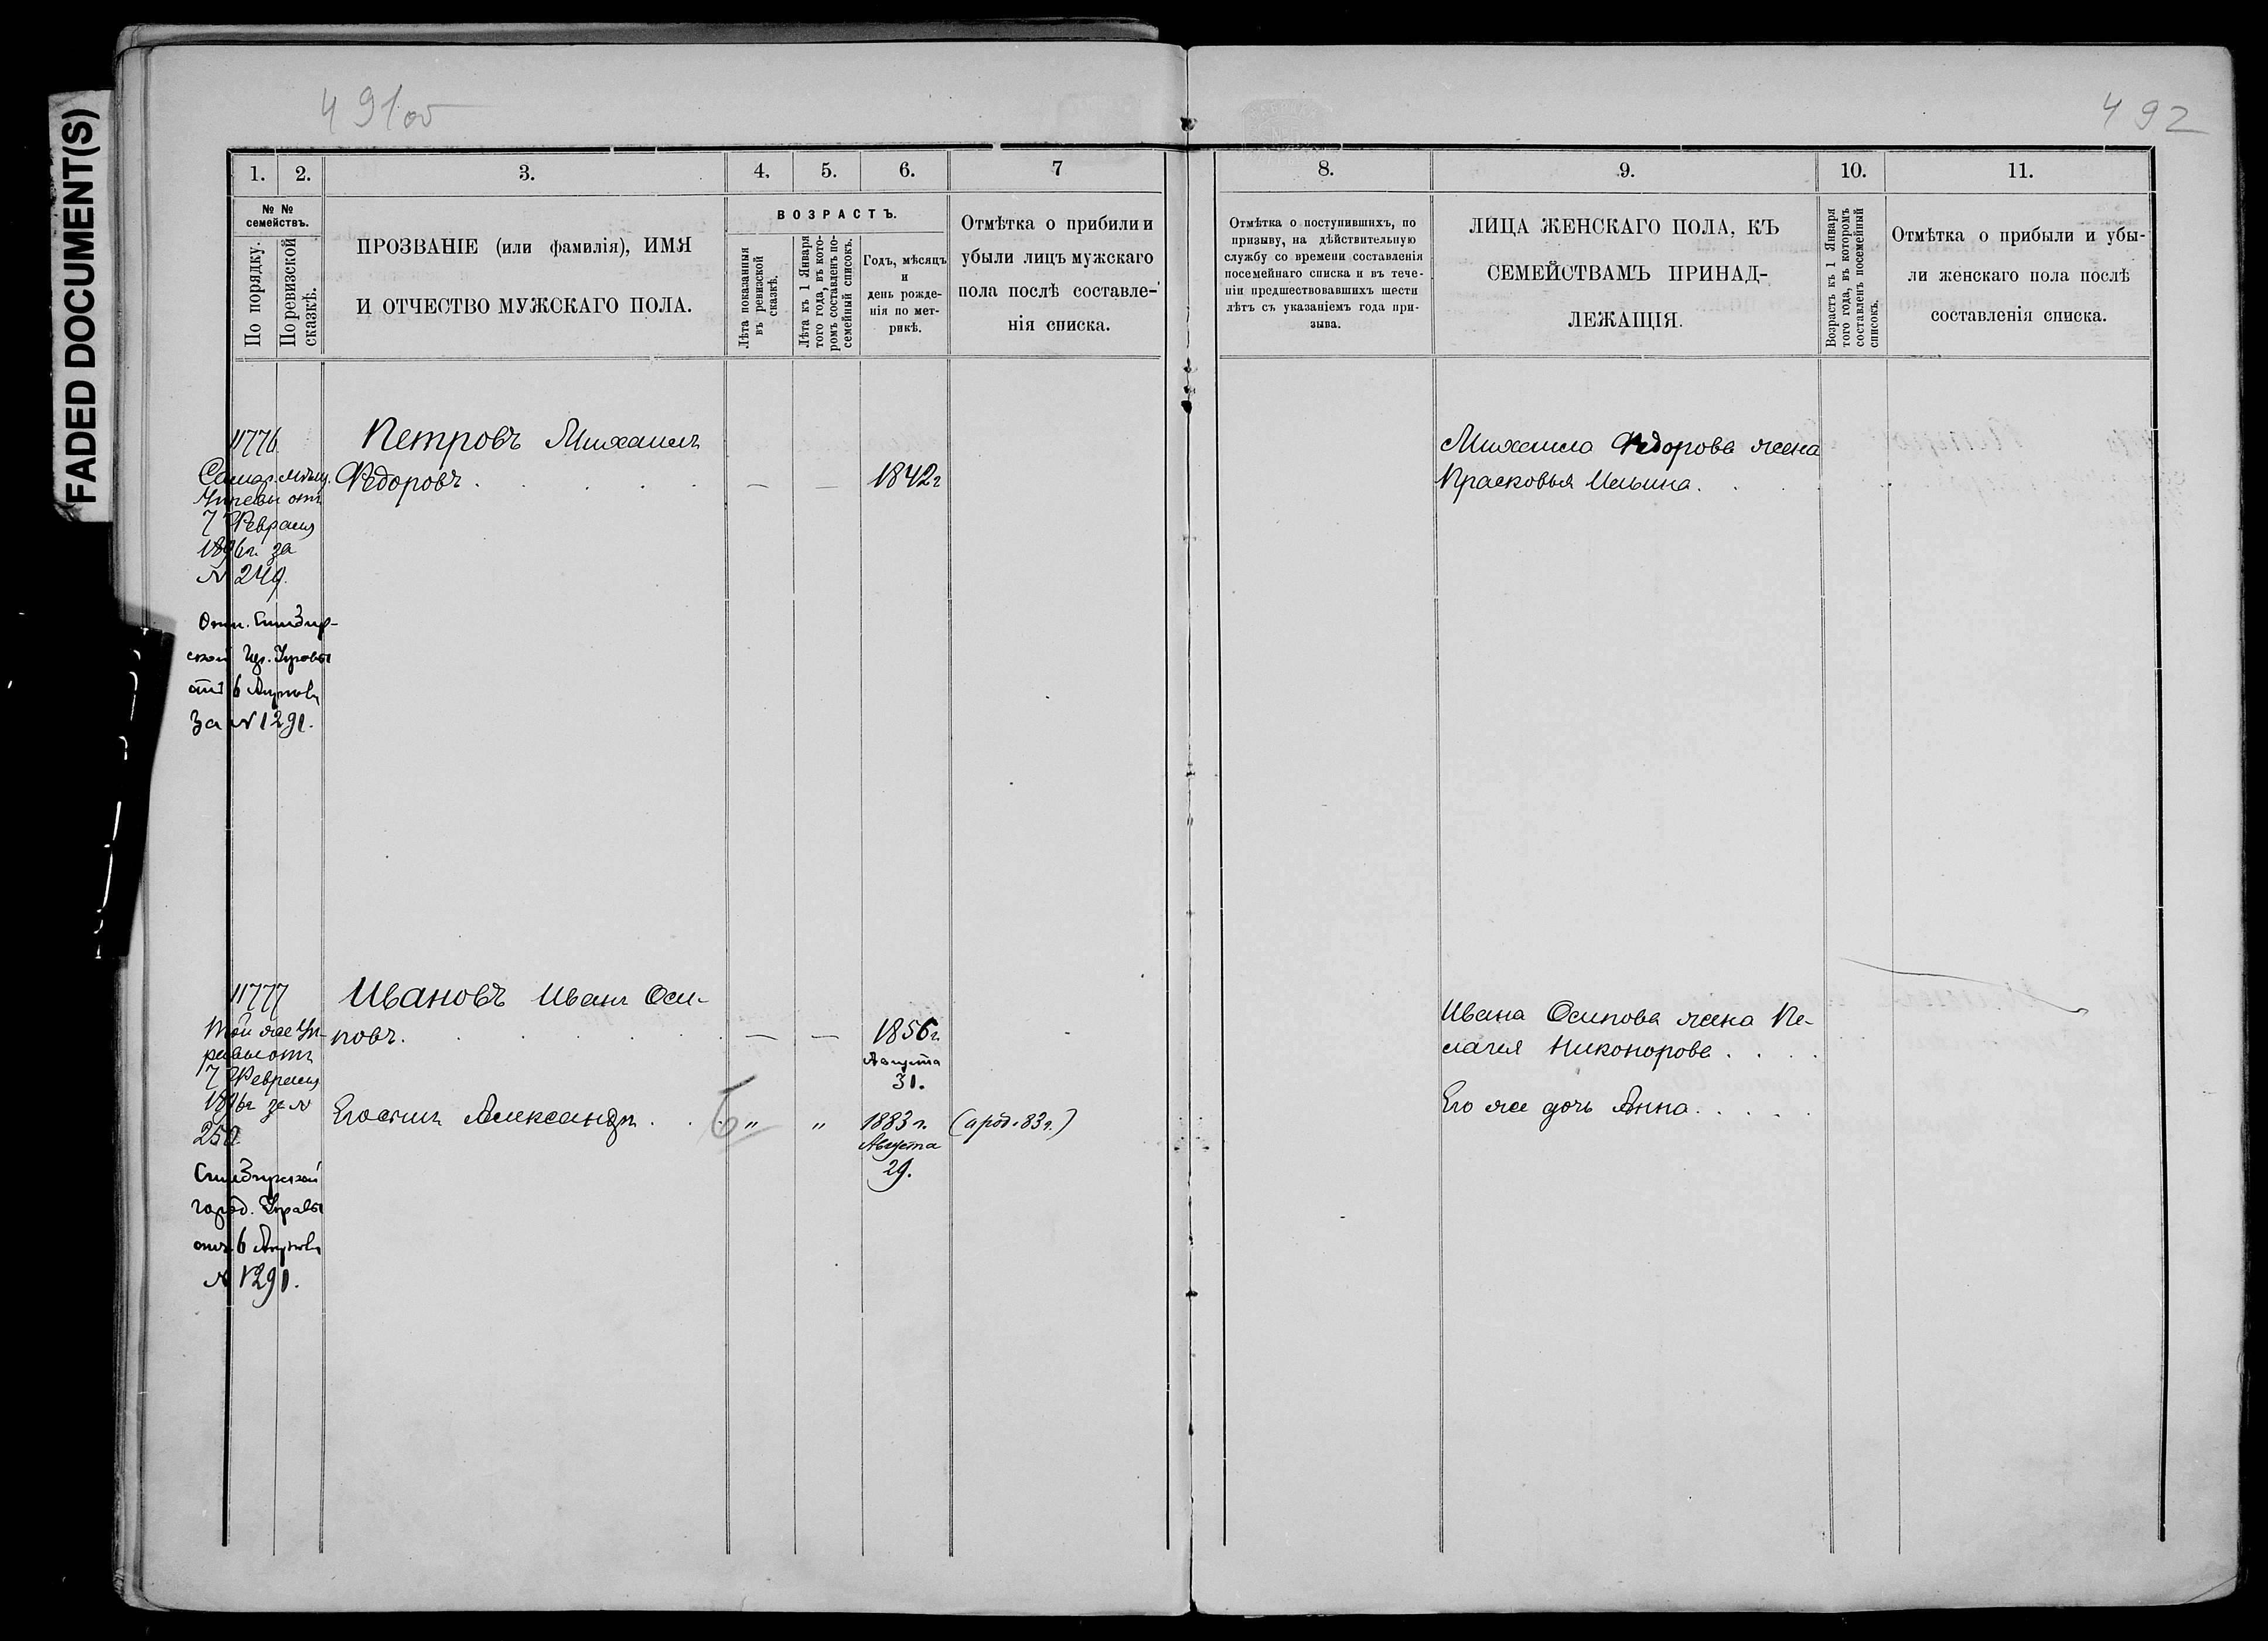 FADED DOCUMENT(S)
491об
492
1.
2.
3.
4.
5.
6.
7
№ №
семействъ.
По порядку.
По ревизской
сказкѣ.
ПРОЗВАНІЕ (или фамилія), ИМЯ
И ОТЧЕСТВО МУЖСКАГО ПОЛА.
ВОЗРАСТЪ.
Лѣта показанныя
въ ревизской
сказкѣ.
Лѣта къ 1 Января
того года, въ кото-
ромъ составленъ по-
семейный списокъ.
Годъ, мѣсяцъ
и
день рожде-
нія по мет-
рикѣ.
Отмѣтка о прибили и
убыли лицъ мужскаго
пола послѣ составле-
нія списка.
11776
Самар. мѣщ.
Управы отъ
7 Февраля
1896г. за
№ 249.
Отн. Симбир-
ской Гор. Управы
отъ 6
за № 1291.
Петровъ Михаилъ
Ѳедоровъ . . . . .
— — 1842г
11777
Той же Уп-
равы отъ
7 Февраля
1896г за №
250.
Симбирской
город. Управы
отъ 6
№ 1291.
Ивановъ Иванъ Оси-
повъ. . . . . .
— — 1856г.
Августа
31.
Его сынъ Александръ . . .
" " 1883 г. (а род. 83 г.)
Августа
29.
8.
9.
10.
11.
Отмѣтка о поступившихъ, по
призыву, на дѣйствительную
службу со времени составленія
посемейнаго списка и въ тече-
ніи предшествовавшихъ шести
лѣтъ съ указаніемъ года при-
зыва.
ЛИЦА ЖЕНСКАГО ПОЛА, КЪ
СЕМЕЙСТВАМЪ ПРИНАД-
ЛЕЖАЩІЯ.
Возрастъ къ 1 Января
того года, въ которомъ
составленъ посемейный
списокъ.
Отмѣтка о прибыли и убы-
ли женскаго пола послѣ
составленія списка.
Михаила Ѳедорова жена
Прасковья Ильина. . .
Ивана Осипова жена Пе-
лагея Никонорова . . . .
Его же дочь Анна. . . . .